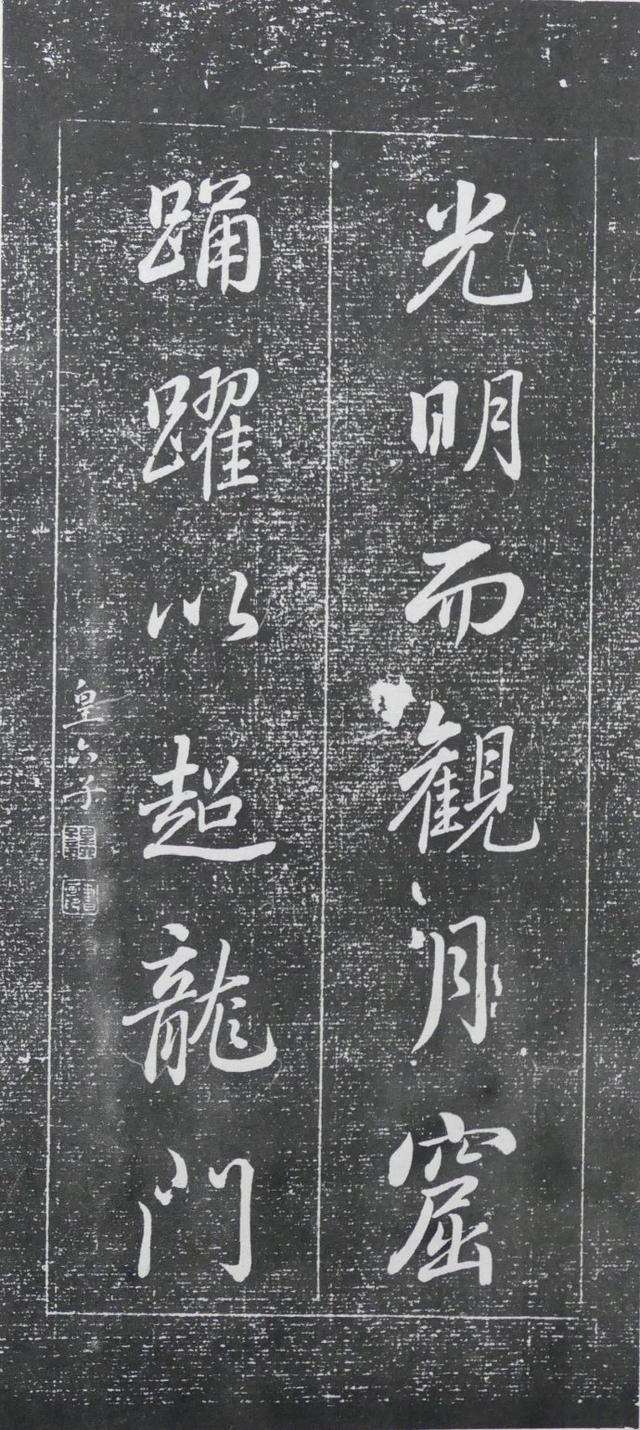 光明而観月窟
踊躍以超龍門
皇六子